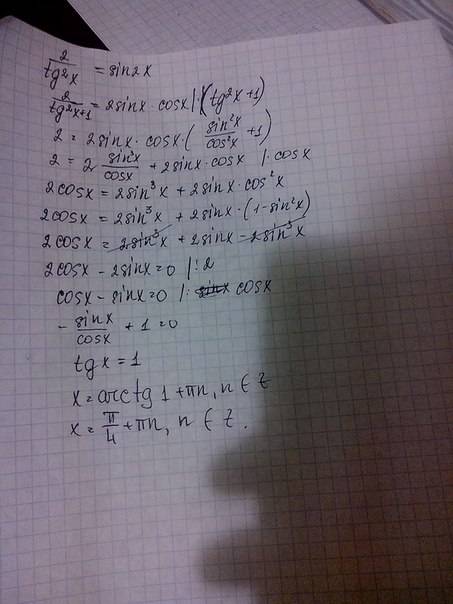 2/tg²x = sin2x
2/tg²x+1 = 2sinx · cosx |:(tg²x+1)
2 = 2sinx · cosx · (sin²x/cos²x + 1)
2 = 2 sin³x/cosx + 2sinx · cosx |· cosx
2cosx = 2sin³x + 2sinx · cos²x
2cosx = 2sin³x + 2sinx · (1-sin²x)
2cosx = 2sin³x + 2sinx - 2sin³x
2cosx - 2sinx = 0 |:2
cosx - sinx = 0 |: sinx cosx
- sinx/cosx + 1 = 0
tgx = 1
x = arctg1 + πn, n ∈ z
x = π/4 + πn, n ∈ z.